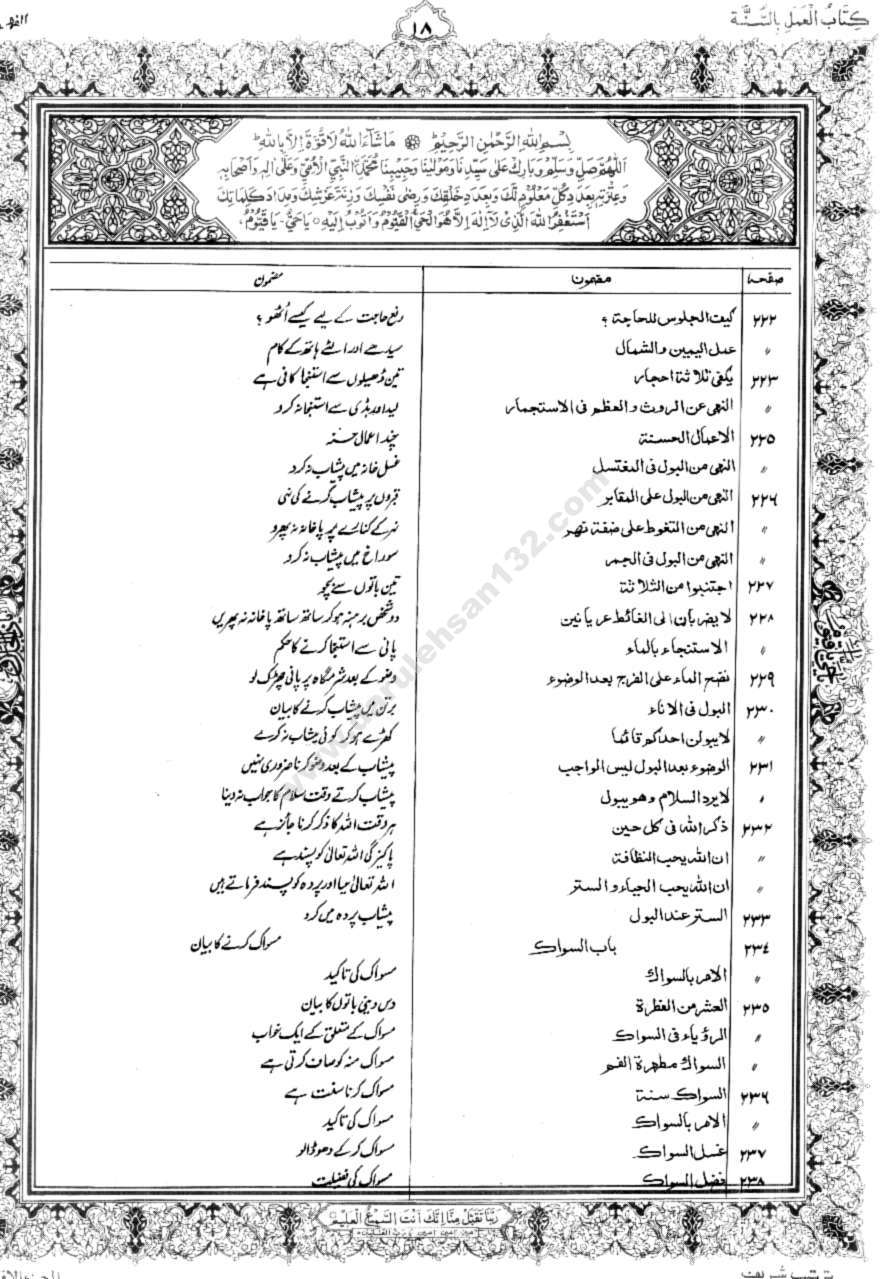 كِتَابُ الْعَمَلِ بِالسُّنَّة
١٨
بِسْمِ اللهِ الرَّحْمٰنِ الرَّحِيْمِ مَا شَآءَ اللهُ لَا قُوَّةَ اِلَّا بِاللهِ
اَللّٰهُمَّ صَلِّ وَسَلِّمْ وَبَارِكْ عَلٰى سَيِّدِنَا وَمَوْلٰينَا وَحَبِيْبِنَا مُحَمَّدِ النَّبِيِّ الْاُمِّيِّ وَعَلٰى اٰلِهٖ وَاَصْحَابِهٖ
وَعِتْرَتِهٖ بِعَدَدِ كُلِّ مَعْلُوْمٍ لَّكَ وَبِعَدَدِ خَلْقِكَ وَرِضٰى نَفْسِكَ وَزِنَةِ عَرْشِكَ وَمِدَادِ كَلِمَاتِكَ
اَسْتَغْفِرُ اللهَ الَّذِىْ لَآ اِلٰهَ اِلَّا هُوَ الْحَىُّ الْقَيُّوْمُ وَاَتُوْبُ اِلَيْهِ ٥ يَا حَىُّ - يَا قَيُّوْمُ
صفحه مضمون مضمون
٢٢٢ كيف الجلوس للحاجة ؟ رفع حاجت کے لیے کیسے اُٹھو ؟
〃 عمل اليمين والشمال سیدھے اور الٹے ہاتھ کے کام
٢٢٣ يكفى ثلاثة احجار تین ڈھیلوں سے استنجا کافی ہے
〃 النهى عن الروث والعظم فى الاستجمار لید اور ہڈی سے استنجا نہ کرو
٢٢٥ الاعمال الحسنة چند اعمال حسنہ
〃 النهى من البول فى المغتسل غسل خانہ میں پیشاب نہ کرو
٢٢٦ النهى من البول على المقابر قبروں پر پیشاب کرنے کی نہی
〃 النهى من التغوط على ضفة نهر نہر کے کنارے پر پاخانہ نہ پھرو
〃 النهى من البول فى الجحر سوراخ میں پیشاب نہ کرو
٢٢٧ اجتنبوا من الثلاثة تین باتوں سے بچو
٢٢٨ لا يضربان الى الغائط عريانين دو شخص برہنہ ہو کر ساتھ ساتھ پاخانہ نہ پھریں
〃 الاستنجاء بالماء پانی سے استنجا کرنے کا حکم
٢٢٩ نضح الماء على الفرج بعد الوضوء وضو کے بعد شرمگاہ پر پانی چھڑک لو
٢٣٠ البول فى الاناء برتن میں پیشاب کرنے کا بیان
〃 لا يبولن احدكم قائما کھڑے ہو کر کوئی پیشاب نہ کرے
٢٣١ الوضوء بعد البول ليس الواجب پیشاب کے بعد وضو کرنا ضروری نہیں
〃 لا يرد السلام وهو يبول پیشاب کرتے وقت سلام کا جواب نہ دینا
٢٣٢ ذكر الله فى كل حين ہر وقت اللہ کا ذکر کرنا جائز ہے
〃 ان الله يحب النظافة پاکیزگی اللہ تعالیٰ کو پسند ہے
〃 ان الله يحب الحياء والستر اللہ تعالیٰ حیا اور پردہ کو پسند فرماتے ہیں
٢٣٣ الستر عند البول پیشاب پردہ میں کرو
٢٣٤ باب السواك مسواک کرنے کا بیان
〃 الامر بالسواك مسواک کی تاکید
٢٣٥ العشر من الفطرة دس دینی باتوں کا بیان
〃 الرؤياء فى السواك مسواک کے متعلق کے ایک خواب
〃 السواك مطهرة الفم مسواک منہ کو صاف کرتی ہے
٢٣٦ السواك سنة مسواک کرنا سنت ہے
〃 الامر بالسواك مسواک کی تاکید
٢٣٧ غسل السواك مسواک کر کے دھو ڈالو
٢٣٨ فضل السواك مسواک کی فضیلت
رَبَّنَا تَقَبَّلْ مِنَّا اِنَّكَ اَنْتَ السَّمِيْعُ الْعَلِيْمُ
www.darulehsan132.com